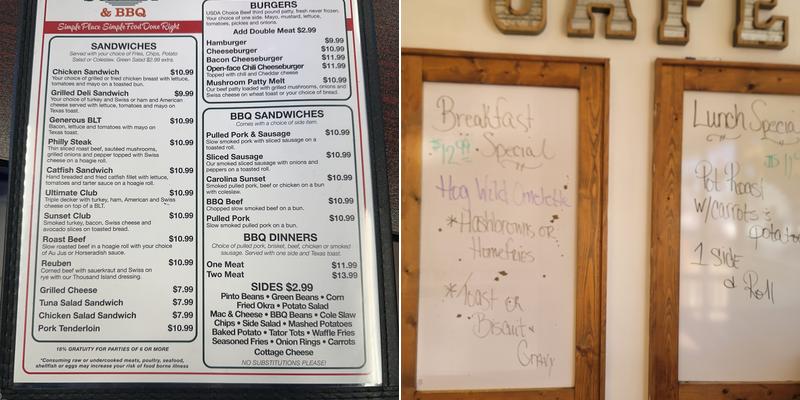 & BBQ
Simple Place Simple Food Done Right
SANDWICHES
Served with your choice of Fries, Chips, Potato
Salad or Coleslaw. Green Salad $2.99 extra.
Chicken Sandwich $10.99
Your choice of grilled or fried chicken breast with lettuce,
tomatoes and mayo on a toasted bun.
Grilled Deli Sandwich $9.99
Your choice of turkey and Swiss or ham and American
cheese served with lettuce, tomatoes and mayo on
Texas toast.
Generous BLT $10.99
Bacon, lettuce and tomatoes with mayo on
Texas toast.
Philly Steak $10.99
Thin sliced roast beef, sautéed mushrooms,
grilled onions and pepper topped with Swiss
cheese on a hoagie roll.
Catfish Sandwich $10.99
Hand breaded and fried catfish fillet with lettuce,
tomatoes and tarter sauce on a hoagie roll.
Ultimate Club $10.99
Triple decker with turkey, ham, American and Swiss
cheese on top of a BLT.
Sunset Club $10.99
Smoked turkey, bacon, Swiss cheese and
avocado slices on toasted bread.
Roast Beef $10.99
Slow roasted beef in a hoagie roll with your choice
of Au Jus or Horseradish sauce.
Reuben $10.99
Corned beef with sauerkraut and Swiss on
rye with our Thousand Island dressing.
Grilled Cheese $7.99
Tuna Salad Sandwich $7.99
Chicken Salad Sandwich $7.99
Pork Tenderloin $10.99
18% GRATUITY FOR PARTIES OF 6 OR MORE
*Consuming raw or undercooked meats, poultry, seafood,
shellfish or eggs may increase your risk of food borne illness
BURGERS
USDA Choice Beef third pound patty, fresh never frozen.
Your choice of one side. Mayo, mustard, lettuce,
tomatoes, pickles and onions.
Add Double Meat $2.99
Hamburger $9.99
Cheeseburger $10.99
Bacon Cheeseburger $11.99
Open-face Chili Cheeseburger $11.99
Topped with chili and Cheddar cheese
Mushroom Patty Melt $10.99
Our beef patty loaded with grilled mushrooms, onions and
Swiss cheese on wheat toast or your choice of bread.
BBQ SANDWICHES
Comes with a choice of side item.
Pulled Pork & Sausage $10.99
Slow smoked pork with sliced sausage on a
toasted roll.
Sliced Sausage $10.99
Our smoked sliced sausage with onions and
peppers on a toasted roll.
Carolina Sunset $10.99
Smoked pulled pork, beef or chicken on a bun
with coleslaw.
BBQ Beef $10.99
Chopped slow smoked beef on a bun.
Pulled Pork $10.99
Slow smoked pulled pork on a bun.
BBQ DINNERS
Choice of pulled pork, brisket, beef, chicken or smoked
sausage. Served with one side and Texas toast.
One Meat $11.99
Two Meat $13.99
SIDES $2.99
Pinto Beans • Green Beans • Corn
Fried Okra • Potato Salad
Mac & Cheese • BBQ Beans • Cole Slaw
Chips • Side Salad • Mashed Potatoes
Baked Potato • Tator Tots • Waffle Fries
Seasoned Fries • Onion Rings • Carrots
Cottage Cheese
NO SUBSTITUTIONS PLEASE!
CAFE
Breakfast
$12.99 Special
Hog Wild Omelette
*Hashbrowns OR
Homefries
*Toast OR
Biscuit &
Gravy
Lunch Specia
Pot Roast
w/carrots &
potato
1 side
& Roll